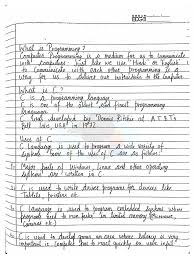 What is Programming?
Computer Programming is a medium for us to communicate
with computers. Just like we use "Hindi" or "English"
to communicate with each other, programming is a
way for us to deliver our instructions to the computer.
What is C?
C is a programming language.
C is one of the oldest and finest programming
languages
C was developed by Dennis Ritchie at AT&T's
Bell labs, USA in 1972
Uses of C
C Language is used to program a wide variety of
systems. Some of the uses of C are as follows:
Major parts of Windows, Linux and other operating
systems are written in C
C is used to write driver programs for devices like
Tablets, printers etc.
C language is used to program embedded systems where
programs need to run faster in limited memory
C is used to develop games, an area where latency is very
important i.e. computer has to react quickly on user input.